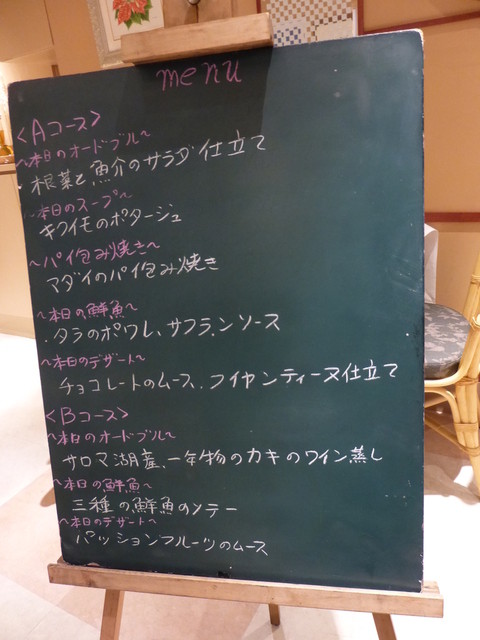 menu
<Aコース>
〜本日のオードブル〜
・根菜と魚介のサラダ仕立て
〜本日のスープ〜
キクイモのポタージュ
〜パイ包み焼き〜
マダイのパイ包み焼き
〜本日の鮮魚〜
・タラのポワレ、サフランソース
〜本日のデザート〜
チョコレートのムース、フイヤンティーヌ仕立て
<Bコース>
〜本日のオードブル〜
サロマ湖産、一年物のカキのワイン蒸し
〜本日の鮮魚〜
三種の鮮魚のソテー
〜本日のデザート〜
パッションフルーツのムース